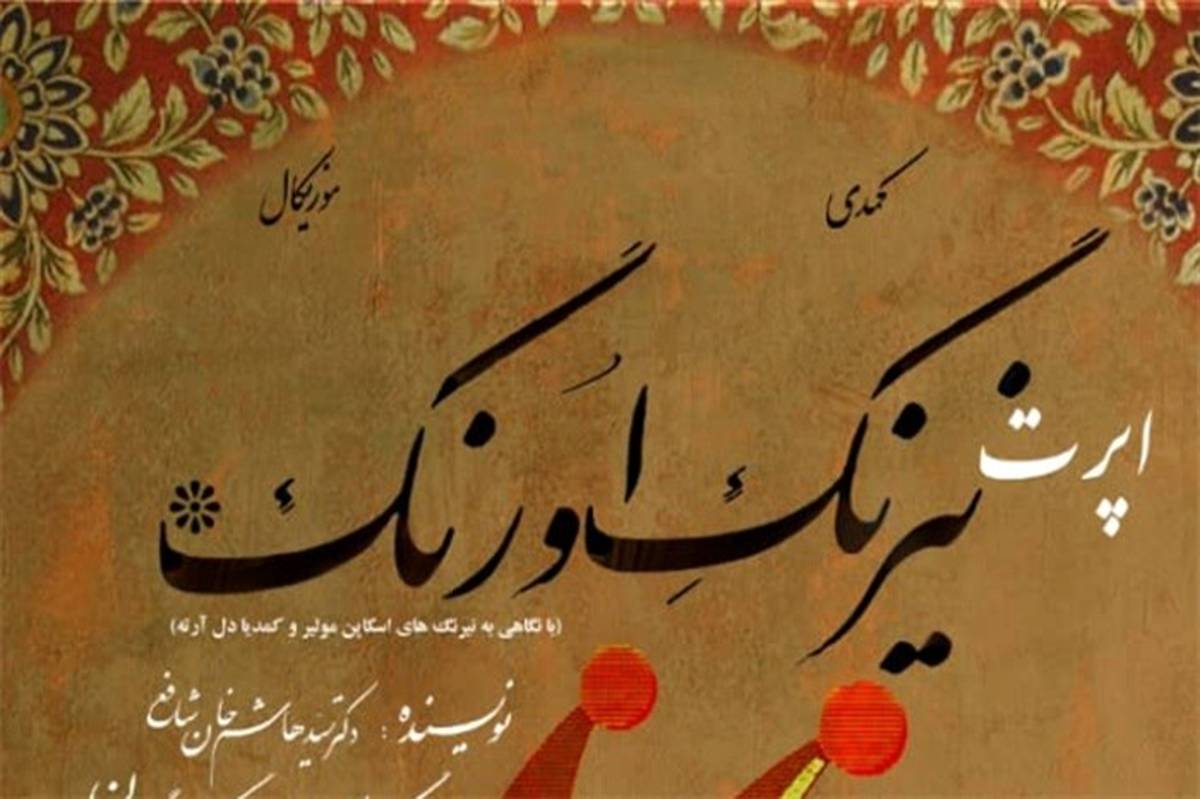 کمدی موزیکال
اپرت
نیرنگِ اَورنگ
(با نگاهی به نیرنگ های اسکاپن مولیر و کمدیا دل آرته)
نویسنده : دکتر سید هاشم خان شافع